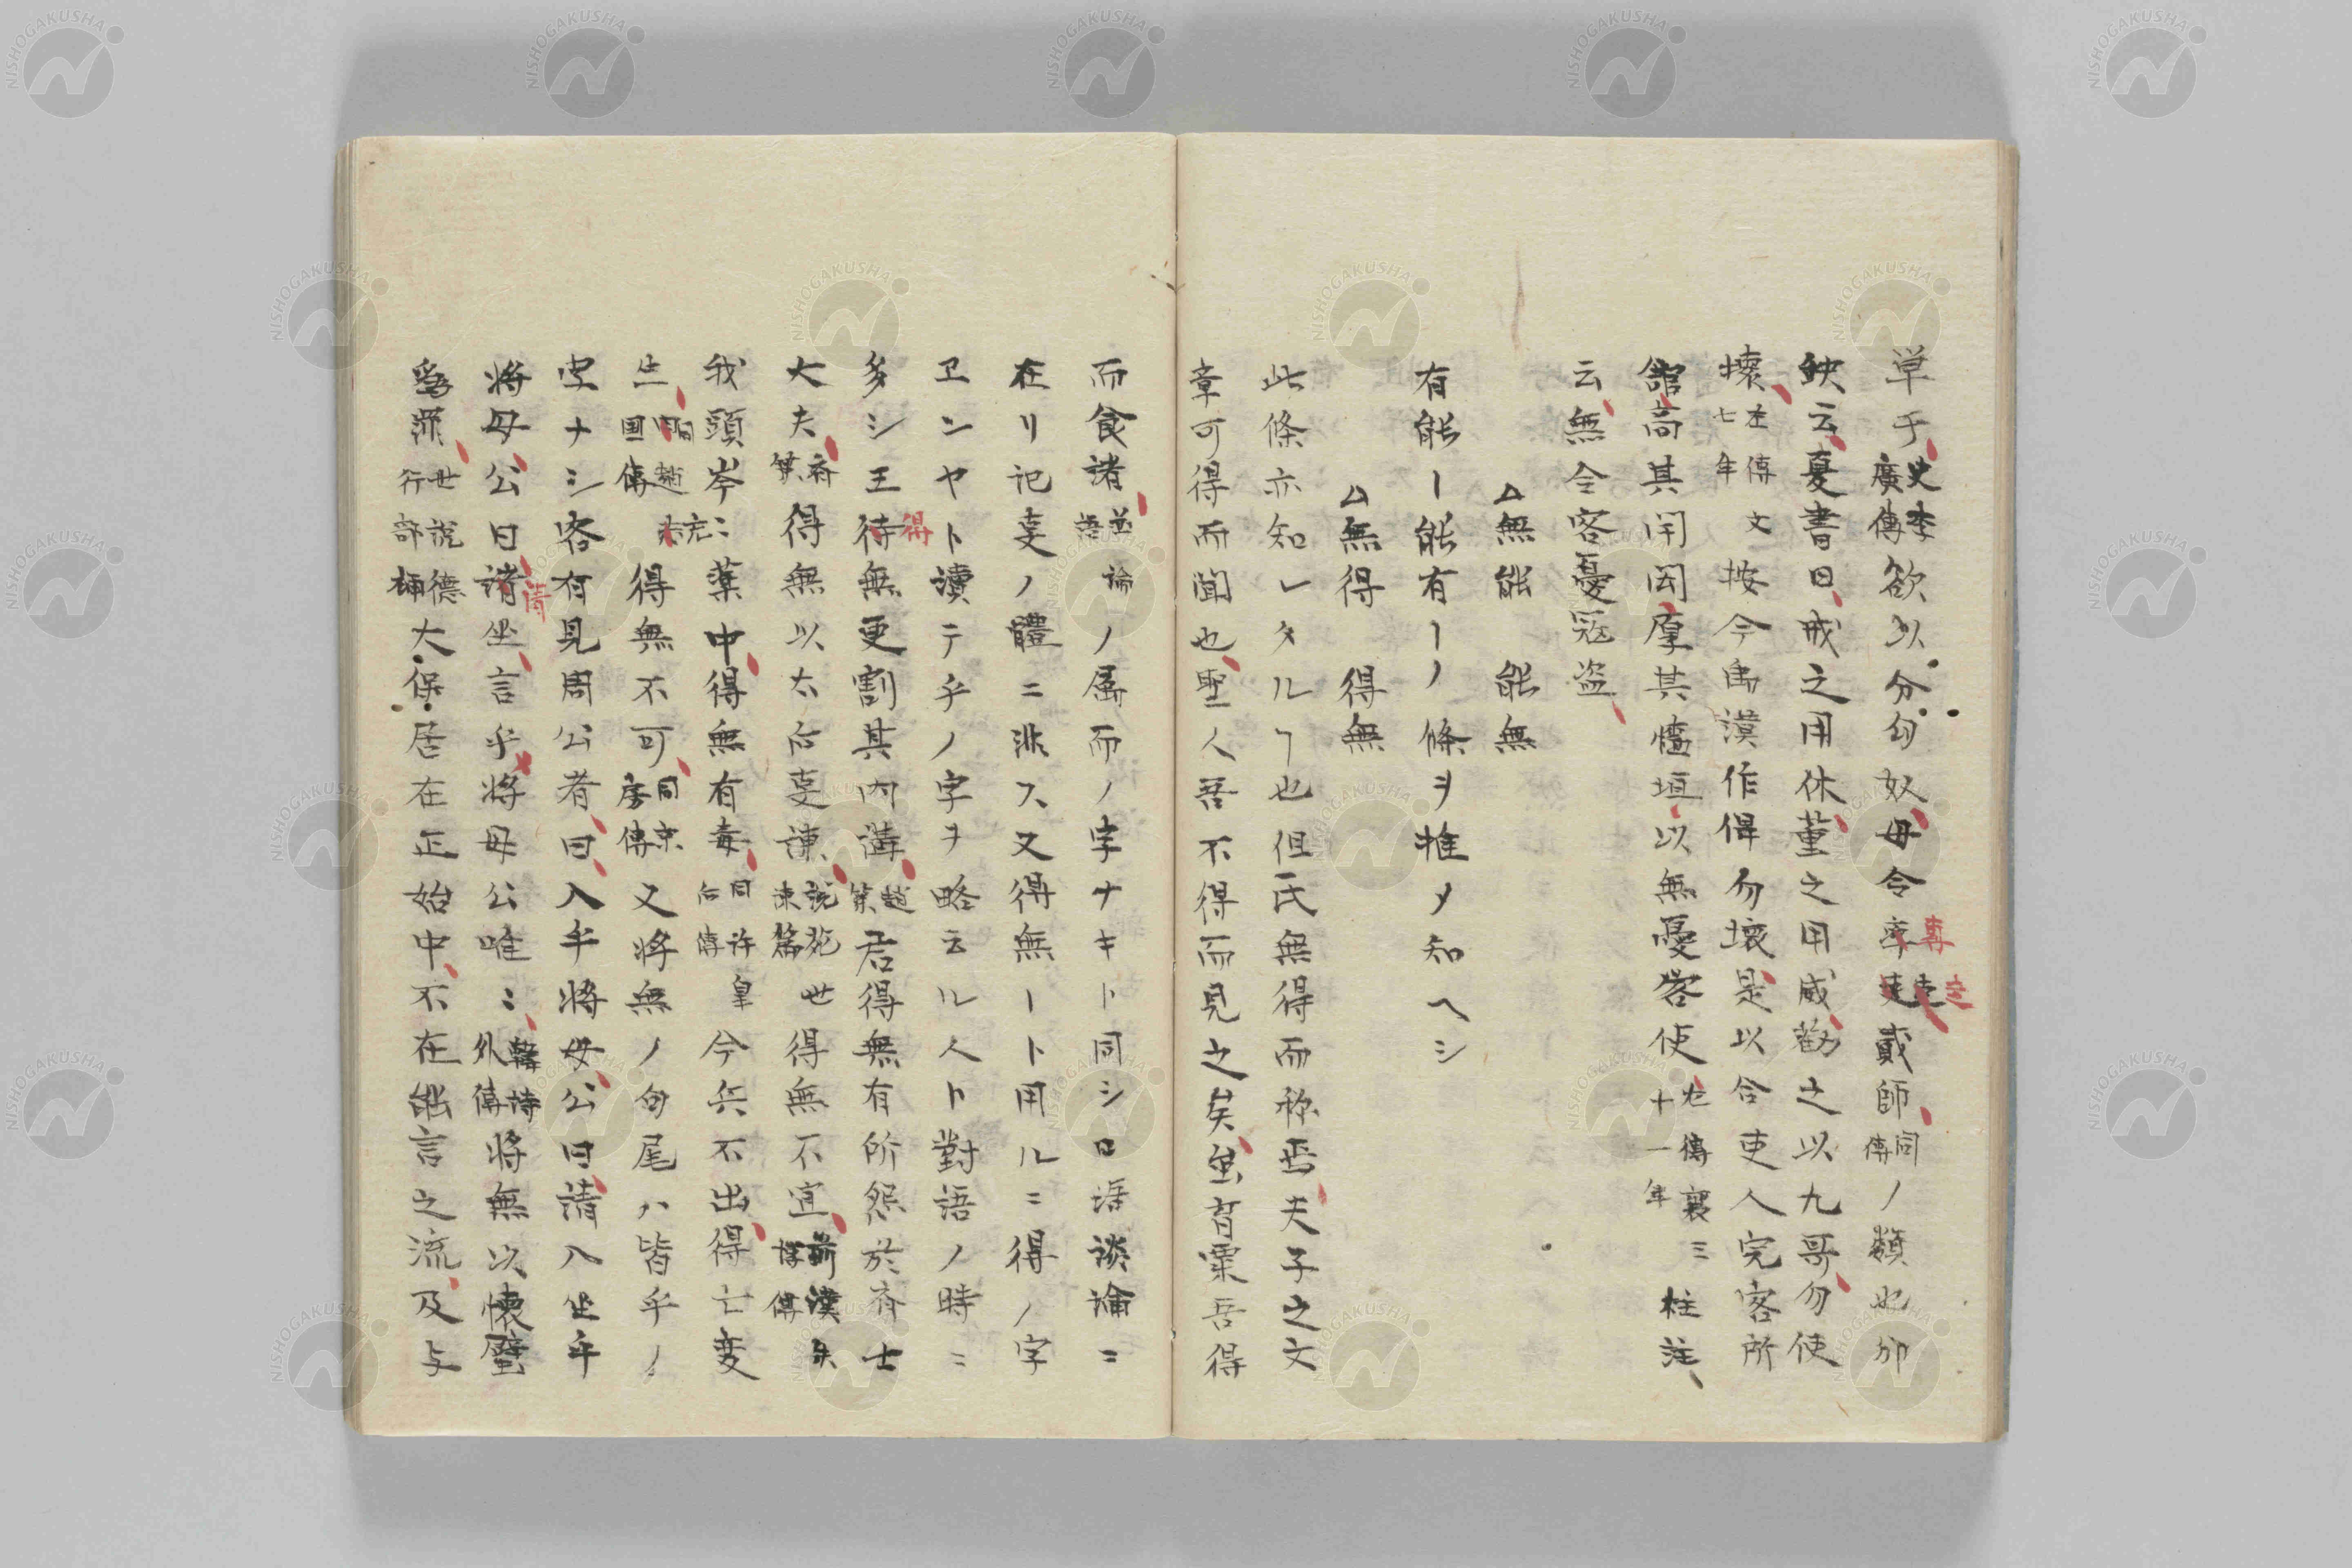 單于史李廣傳欲以分匈奴毋令專走貳師同傳ノ類也郤
缺云夏書曰戒之用休董之用威勸之以九哥勿使
壞左傳文七年按今禹謨作俾勿壞是以令吏人完客所
舘高其閈閎厚其墻垣以無憂客使左傳襄三十一年 杜注
云無令客憂寇盗
△無能 能無
有能ー能有ーノ條ヲ推メ知ヘシ
△無得 得無
此條亦知レタルヿ也但民無得而称焉夫子之文
章可得而聞也聖人吾不得而見之矣雖有粟吾得
而食諸並論語ノ属而ノ字ナキト同シロ語談論ニ
在リ記事ノ體ニ非ス又得無ートト用ルニ得ノ字
ヱンヤト讀テ乎ノ字ヲ略云ル人ト對語ノ時ニ
多シ王得無更割其内講趙策君得無有所怨於齊士
大夫齊策得無以太后事諫說苑諫篇世得無不宜前漢外戚傳
我頭岑〻藥中得無有毒同許皇后傳今兵不出得亡変
生同趙充国傳得無不可同京房傳又将無ノ句尾ハ皆乎ノ
字ナシ客有見周公者曰入乎将毋公曰請入坐乎
将毋公曰請坐言乎将毋公唯〻韓詩外傳将無以懐璧
爲罪世說德行評桶大保居在正始中不在能言之流及与